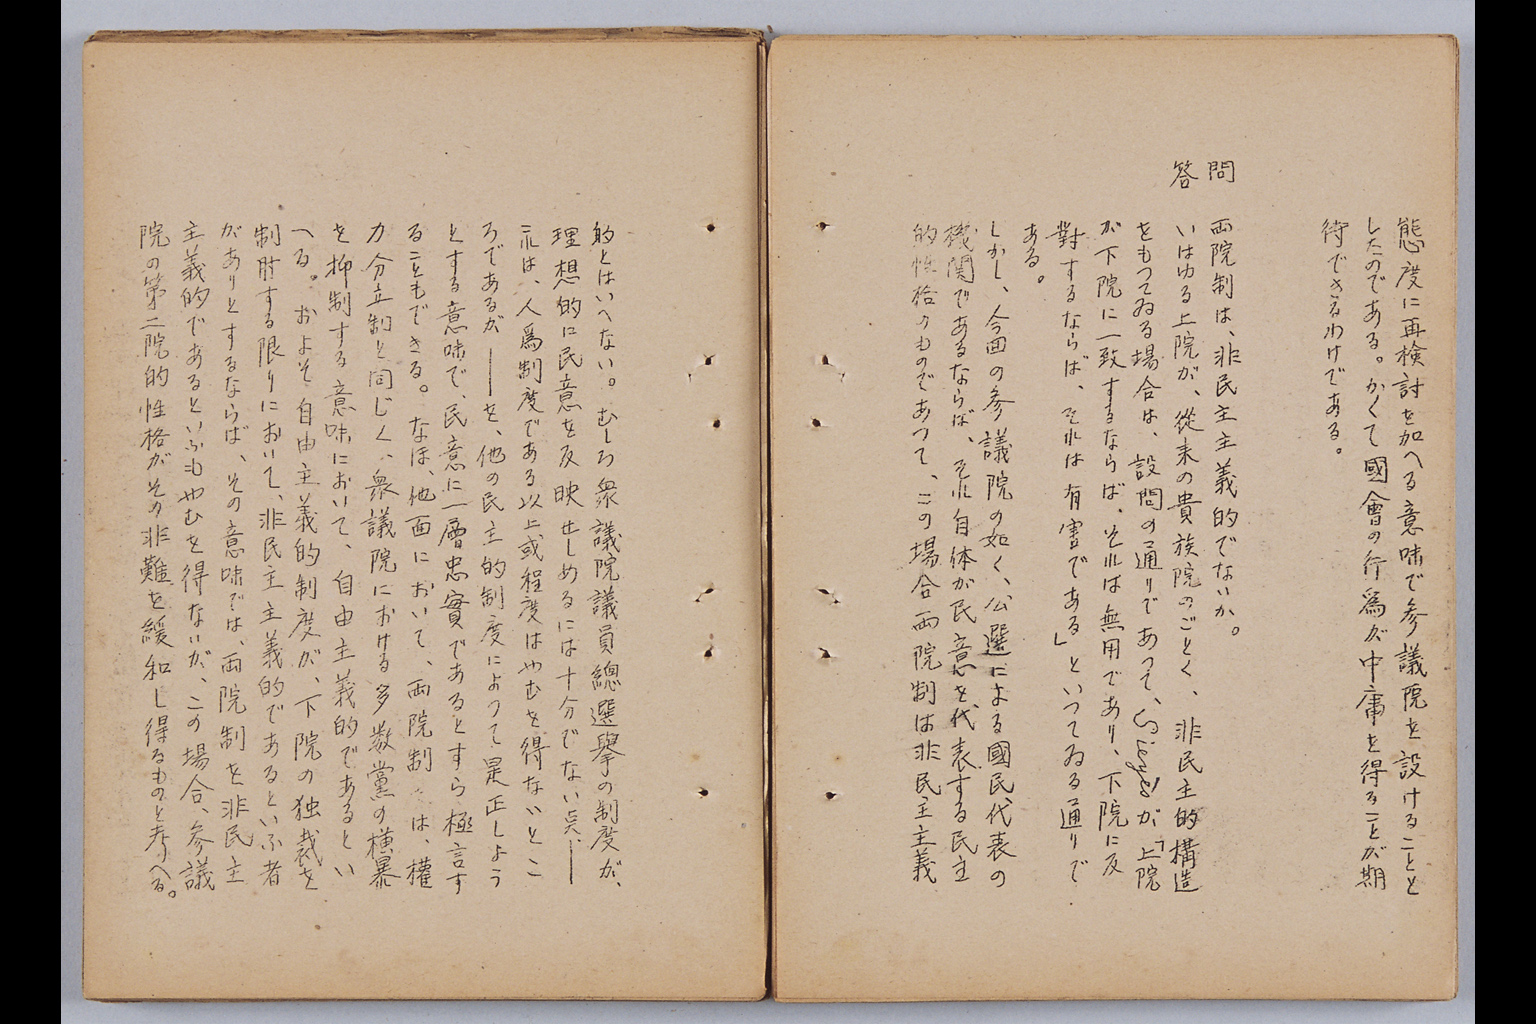 態度に再検討を加へる意味で参議院を設けることと
したのである。かくて國會の行為が中庸を得ることが期
待できるわけである。
問 両院制は、非民主主義的でないか。
答 いはゆる上院が、従来の貴族院のごとく、非民主的構造
をもつてゐる場合は、設問の通りであつて、Sieyèsが「上院
が下院に一致するならば、それは無用であり、下院に反
對するならば、それは有害である」といつてゐる通りで
ある。
しかし、今回の参議院の如く、公選による國民代表の
機関であるならば、それ自体が民意を代表する民主
的性格のものであつて、この場合両院制は非民主主義
的とはいへない。むしろ衆議院議員總選擧の制度が、
理想的に民意を反映せしめるには十分でない点――
これは、人為制度である以上或程度はやむを得ないとこ
ろであるが――を、他の民主的制度によつて是正しよう
とする意味で、民意に一層忠實であるとすら極言す
ることもできる。なほ、他面において、両院制は、權
力分立制と同じく、衆議院における多数黨の横暴
を抑制する意味において、自由主義的であるとい
へる。およそ自由主義的制度が、下院の独裁を
制肘する限りにおいて、非民主主義的であるといふ者
がありとするならば、その意味では、両院制を非民主
主義的であるといふもやむを得ないが、この場合、参議
院の第二院的性格がその非難を緩和し得るものと考へる。